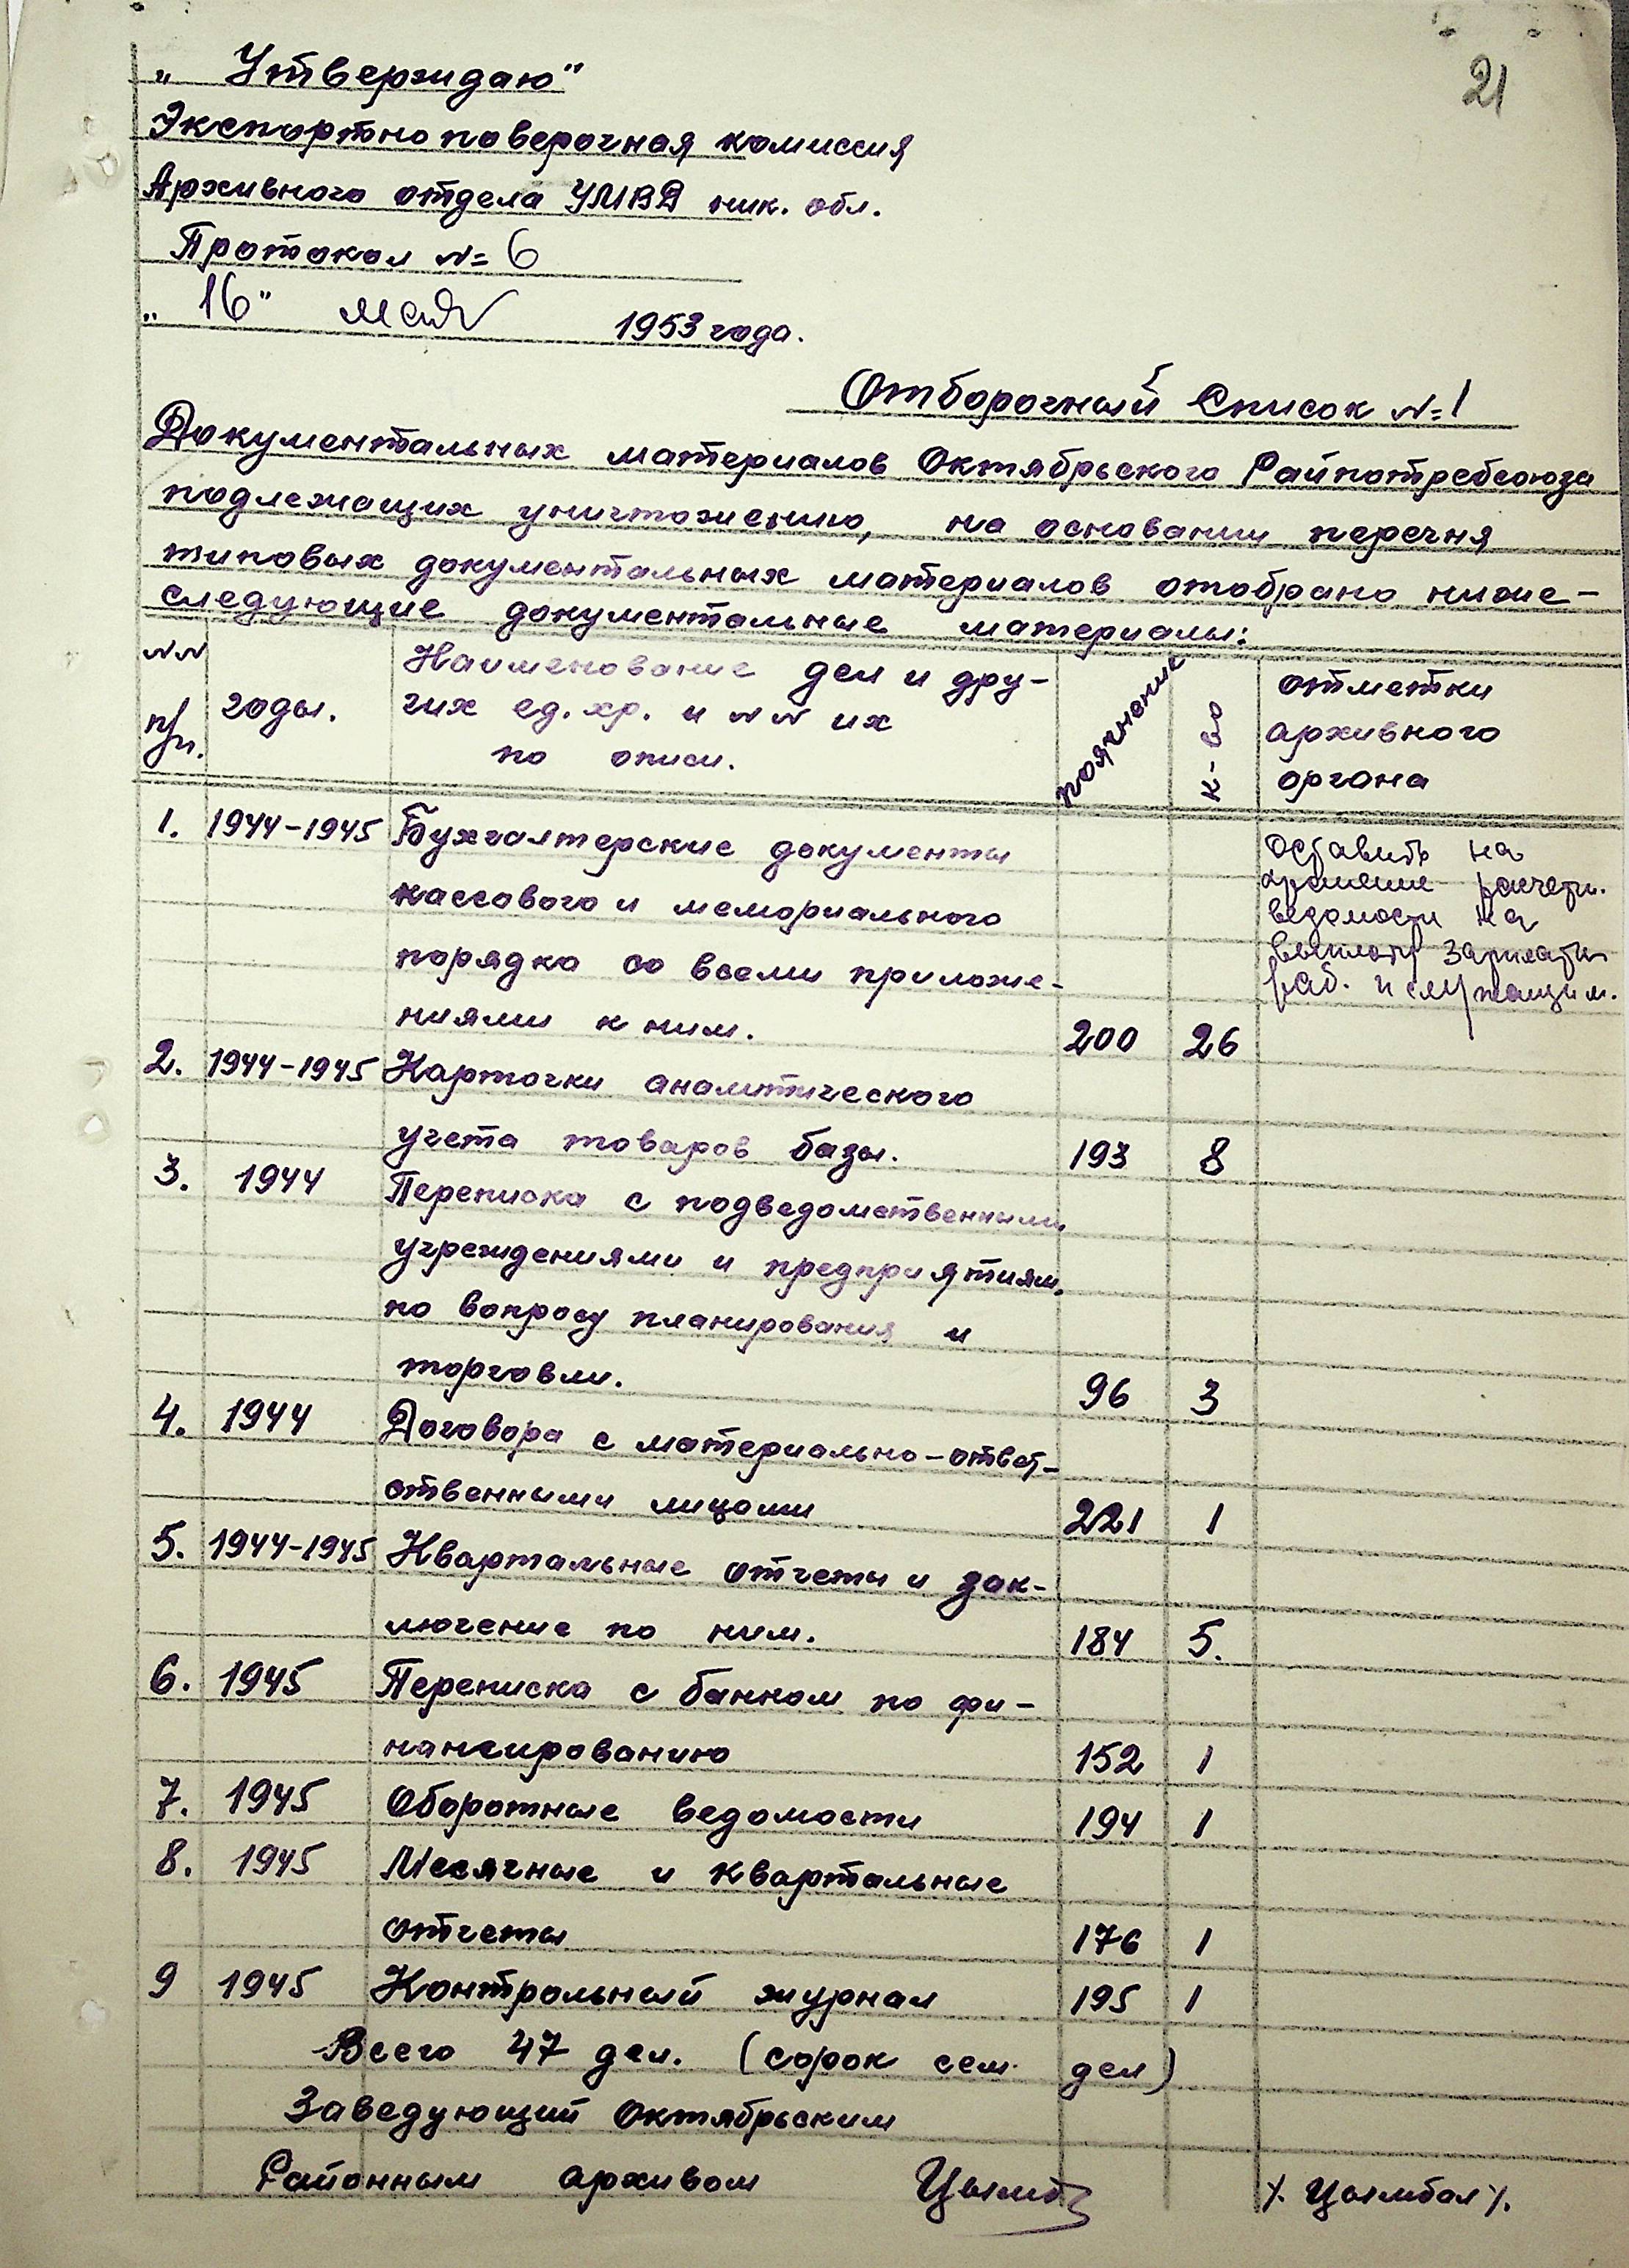 21
„ Утверждаю"
Экспортно поверочная комиссия
Архивного отдела УМВД ник. обл.
Протокол № 6
„ 16" мая 1953 года.
Отборочный Список № 1
Документальных материалов Октябрьского Райпотребсоюза
подлежащих уничтожению, на основании перечня
типовых документальных материалов отобрано ниже-
следующие документальные материалы:
№№ п/п. годы. Наименование дел и дру-
гих ед. хр. и №№ их
по описи. к-во отметки
архивного
органа
1. 1944-1945 Бухгалтерские документы
кассового и мемориального
порядка со всеми приложе-
ниями к ним. 200 26
оставить на
хранение расчетн.
ведомости на
выплату зарплаты
раб. и служащим.
2. 1944-1945 Карточки аналитического
учета товаров базы. 193 8
3. 1944 Переписка с подведомственными
учреждениями и предприятиям.
по вопросу планирования и
торговли. 96 3
4. 1944 Договора с материально-ответ-
ственными лицами 221 1
5. 1944-1945 Квартальные отчеты и зак-
лючение по ним. 184 5.
6. 1945 Переписка с банком по фи-
нансированию 152 1
7. 1945 Оборотные ведомости 194 1
8. 1945 Месячные и квартальные
отчеты 176 1
9 1945 Контрольный журнал 195 1
Всего 47 дел. (сорок сем дел)
Заведующий Октябрьским
Районным архивом Цымб /. Цымбал /.